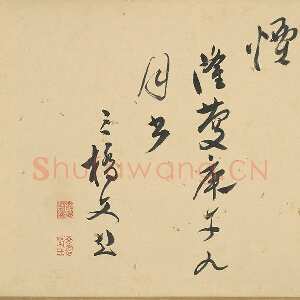 煙
隆慶庚午九
月書
三橋文彭
Shufawang.CN